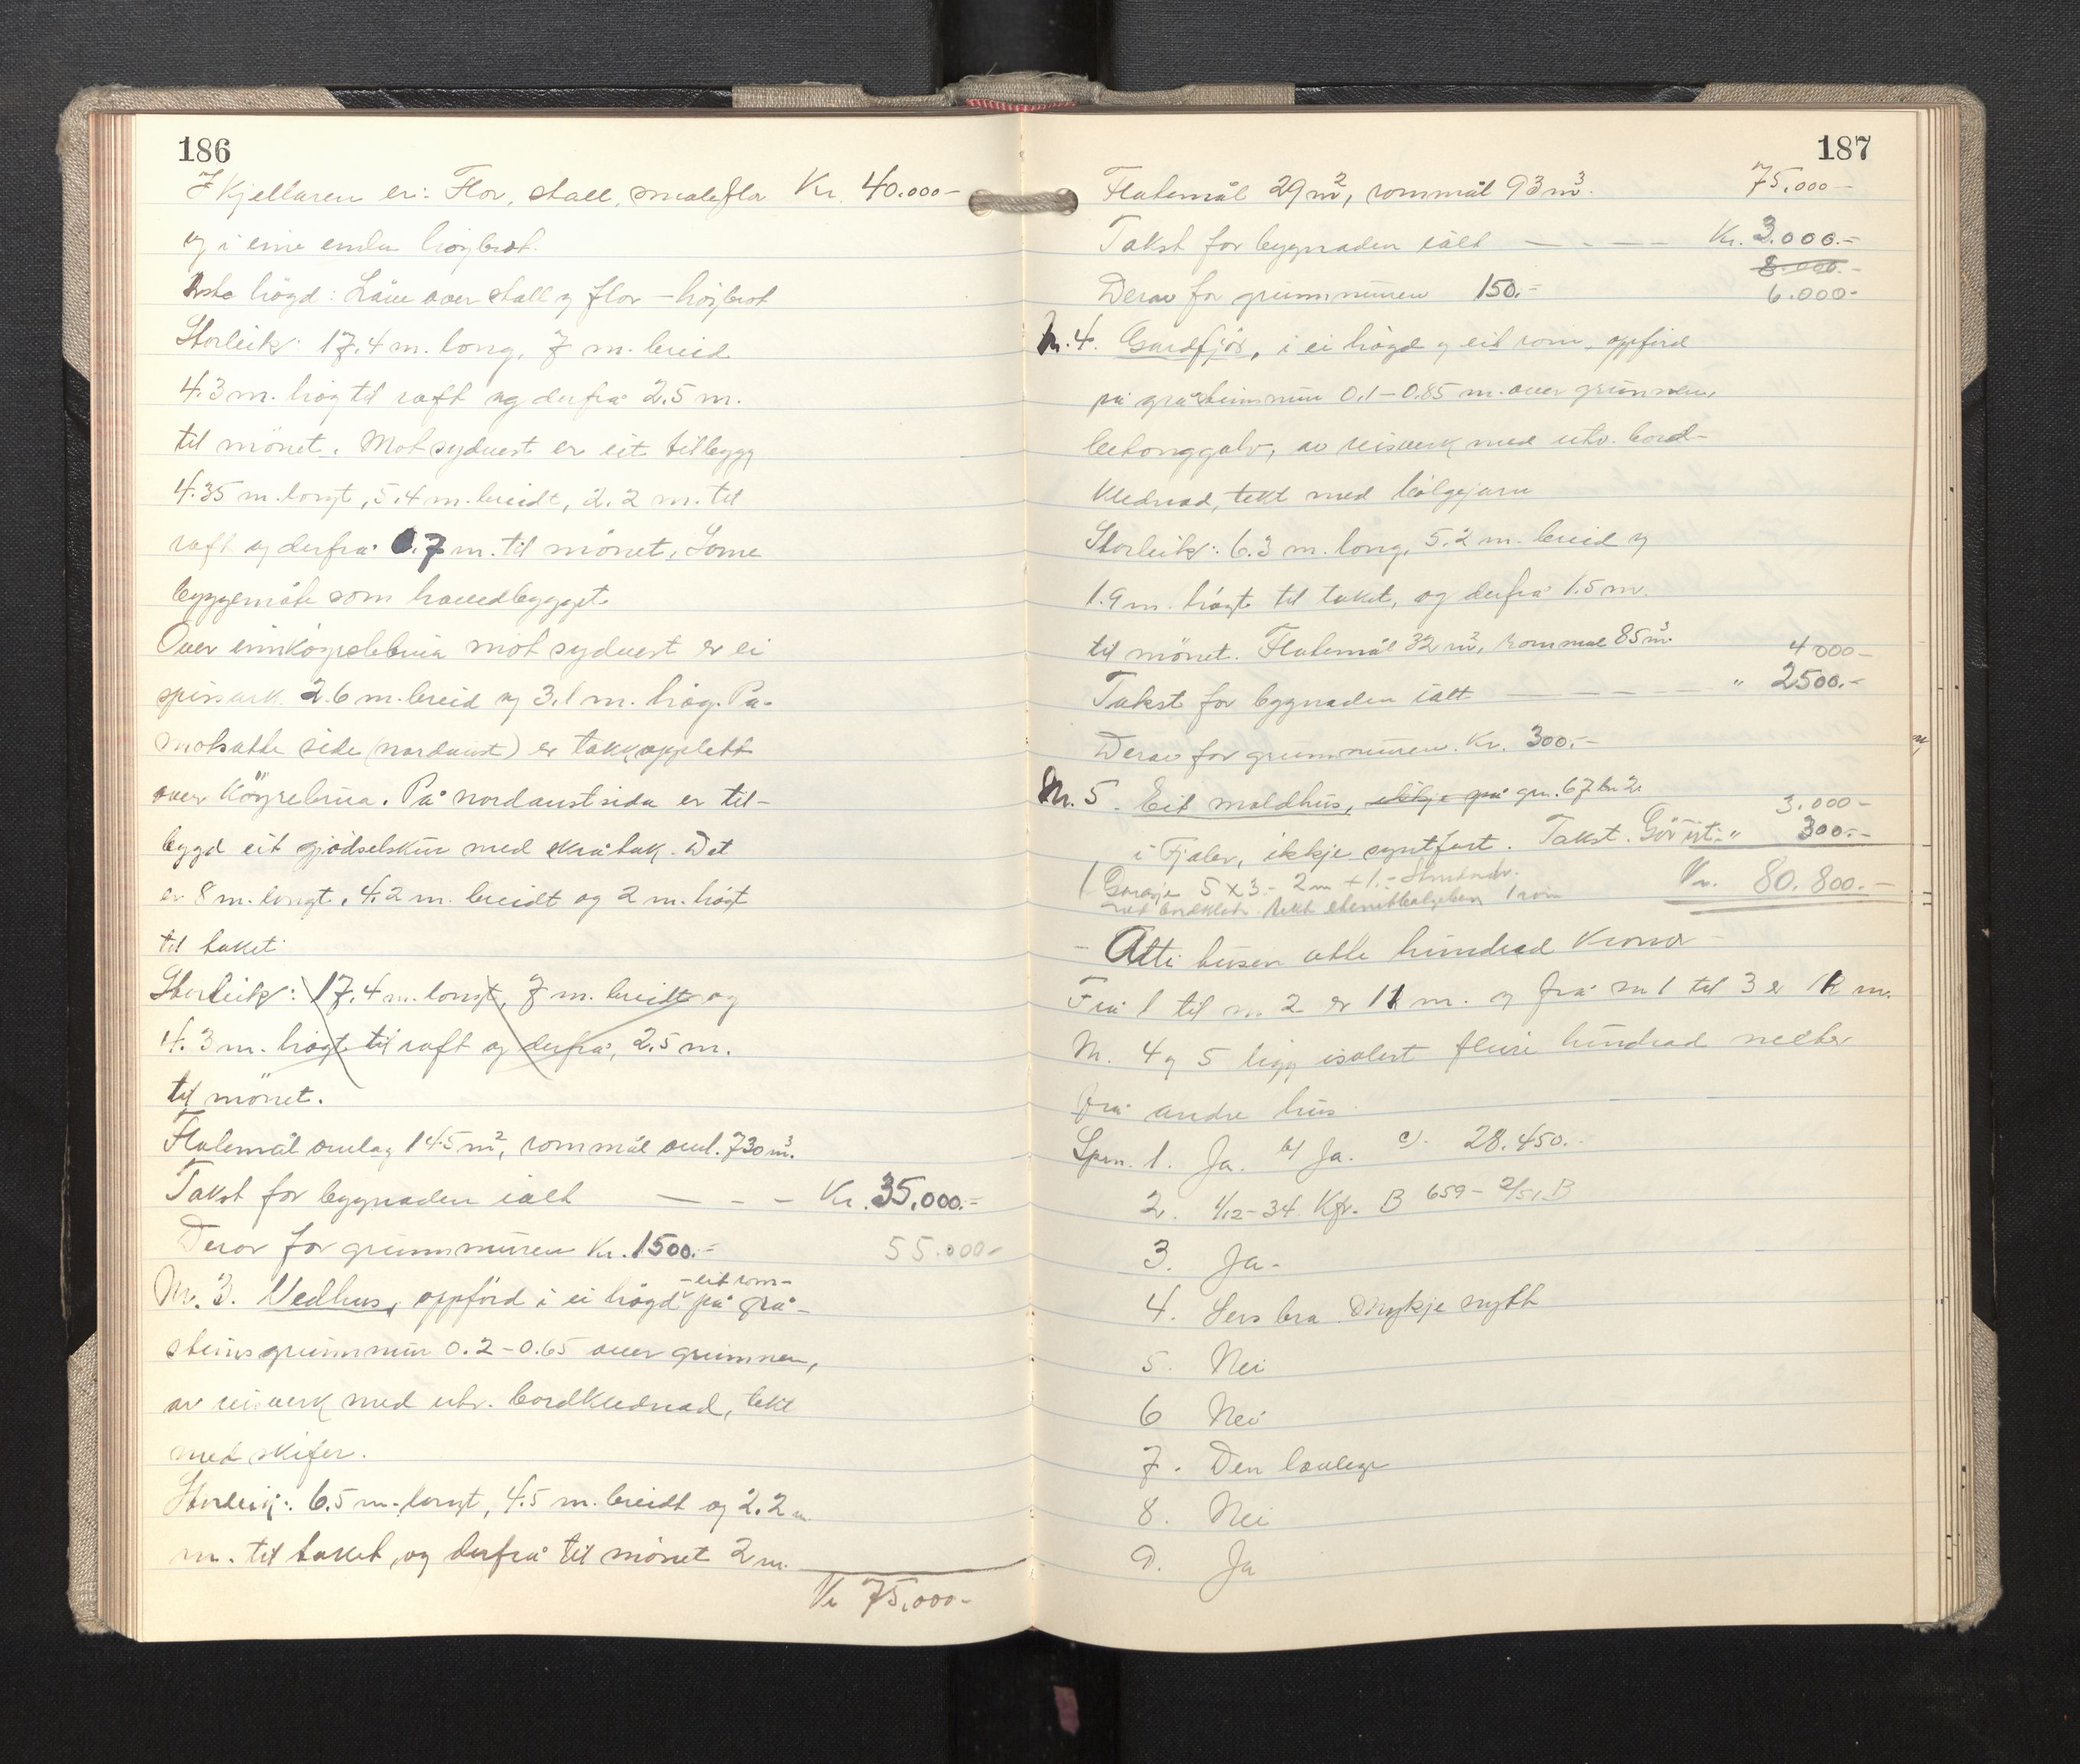 186
I Kjellaren er: Flor, stall, smaleflor Kr. 40.000-
og i eine enden höybrot.
1ste högd: Låve over stall og flor - höybrot
Storleik: 17.4 m. long, 7 m. breid
4.3 m. høg til raft og derfrå 2.5 m.
til mönet. Mot sydvest er eit tilbygg
4.35 m. longt, 5.4 m. breidt, 2.2 m. til
raft og derfrå 0.7 m. til mönet, Same
byggemåte som hovedbygget.
Over innköyrslebrua mot sydvest er ei
spissark 2.6 m. breid og 3.1 m. høg. På
motsatte side (nordaust) er takk opplett
over Köyrebrua. På nordaustsida er til-
bygd eit gjödselskur med skråtak. Det
er 8 m. longt, 4.2 m. breidt og 2 m. högt
til taket.
Storleik: 17.4 m. longt, 7 m. breidt og
4.3 m. högt til raft og derfrå, 2.5 m.
til mönet.
Flatemål omlag 145 m², rommål oml. 730 m³.
Takst for bygnaden ialt — - - Kr. 35.000.-
Derav for grunnmuren Kr. 1500.- 55.000-
Nr. 3. Vedhus, oppförd i ei högd -eit rom- på grå-
steinsgrunnmur 0.2-0.65 over grunnen,
av reisverk med utv. bordklednad, tekt
med skifer.
Storleik: 6.5 m. longt, 4.5 m. breidt og 2.2
m. til taket, og derfrå til mönet 2 m.
Kr 75.000-
187
Flatemål 29 m², rommål 93 m³. 75.000-
Takst for bygnaden ialt — - - — Kr. 3.000.-
8.000.-
Derav for grunnmuren 150.- 6.000-
Nr. 4. Gardfjös, i ei högd og eit rom, oppförd
på gråsteinsmur 0.1-0.85 m. over grunnen,
betonggolv, av reisverk med utv. bord-
klednad, tekt med bölgejarn
Storleik: 6.3 m. long, 5.2 m. breid og
1.9 m. högt til taket, og derfrå 1.5 m.
til mönet. Flatemål 32 m², rommål 85 m³. 4000-
Takst for bygnaden ialt — — — — " 2500.-
Derav for grunnmuren. Kr. 300.-
Nr. 5. Eit moldhus, ikkje på gn. 67 bn 2
3.000-
i Fjaler, ikkje synfart. Takst. " 300.-
Garasje 5 x 3 - 2 m + 1.-
1 rom
Kr. 80.800.-
- Åtti tusen åtte hundrad Kroner -
Frå 1 til nr. 2 er 11 m. og frå nr 1 til 3 er 12 m.
Nr. 4 og 5 ligg isolert fleire hundrad meter
frå andre hus.
Spm. 1. Ja. b) Ja. c). 28.450.-
2. 1/12-34. Kfr. B 659 - 2/51 B
3. Ja.
4. Sers bra Mykje nytt
5. Nei
6 Nei
7. Den lovlege
8. Nei
9. Ja